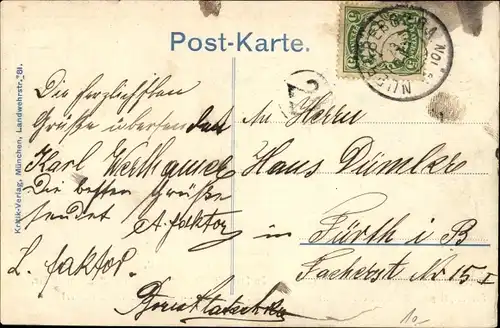 Post-Karte.
Kritik-Verlag, München, Landwehrstr. 81.
Die herzlichsten
Grüße übersenden
Karl
Die besten Grüße
sendet A. Faktor
L. Faktor.
An Herrn
Hans Dümler
in Fürth i B
Facherst No 15 I
10-
2